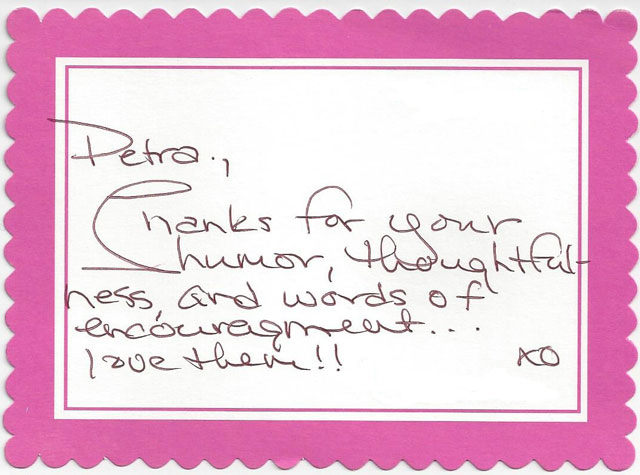 Petra.,
Thanks for your
humor, thoughtful-
ness, and words of
encouragment...
love them!!
XO